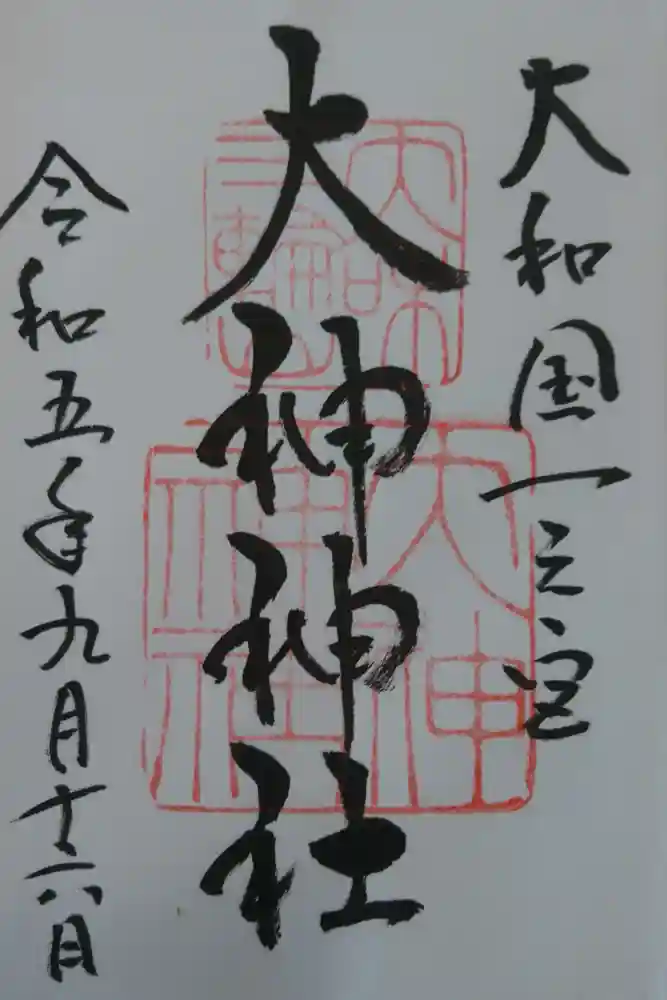 大和国一之宮
大和
三輪山
大神神社
大神
神社
令和五年九月十六日